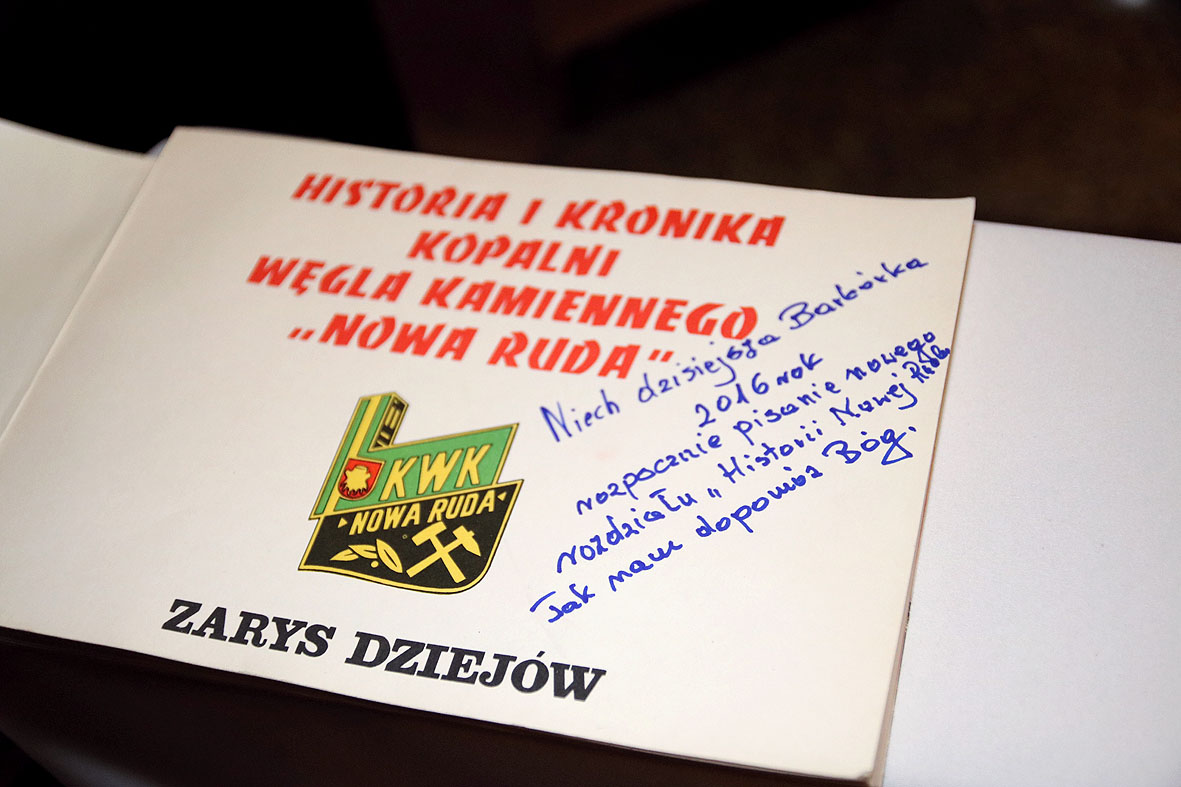 HISTORIA I KRONIKA
KOPALNI
WĘGLA KAMIENNEGO
„NOWA RUDA"
Niech dzisiejsza Barbórka
2016 rok
rozpocznie pisanie nowego
rozdziału „Historii Nowej Rudy
Tak nam dopomóż Bóg.
KWK
NOWA RUDA
ZARYS DZIEJÓW